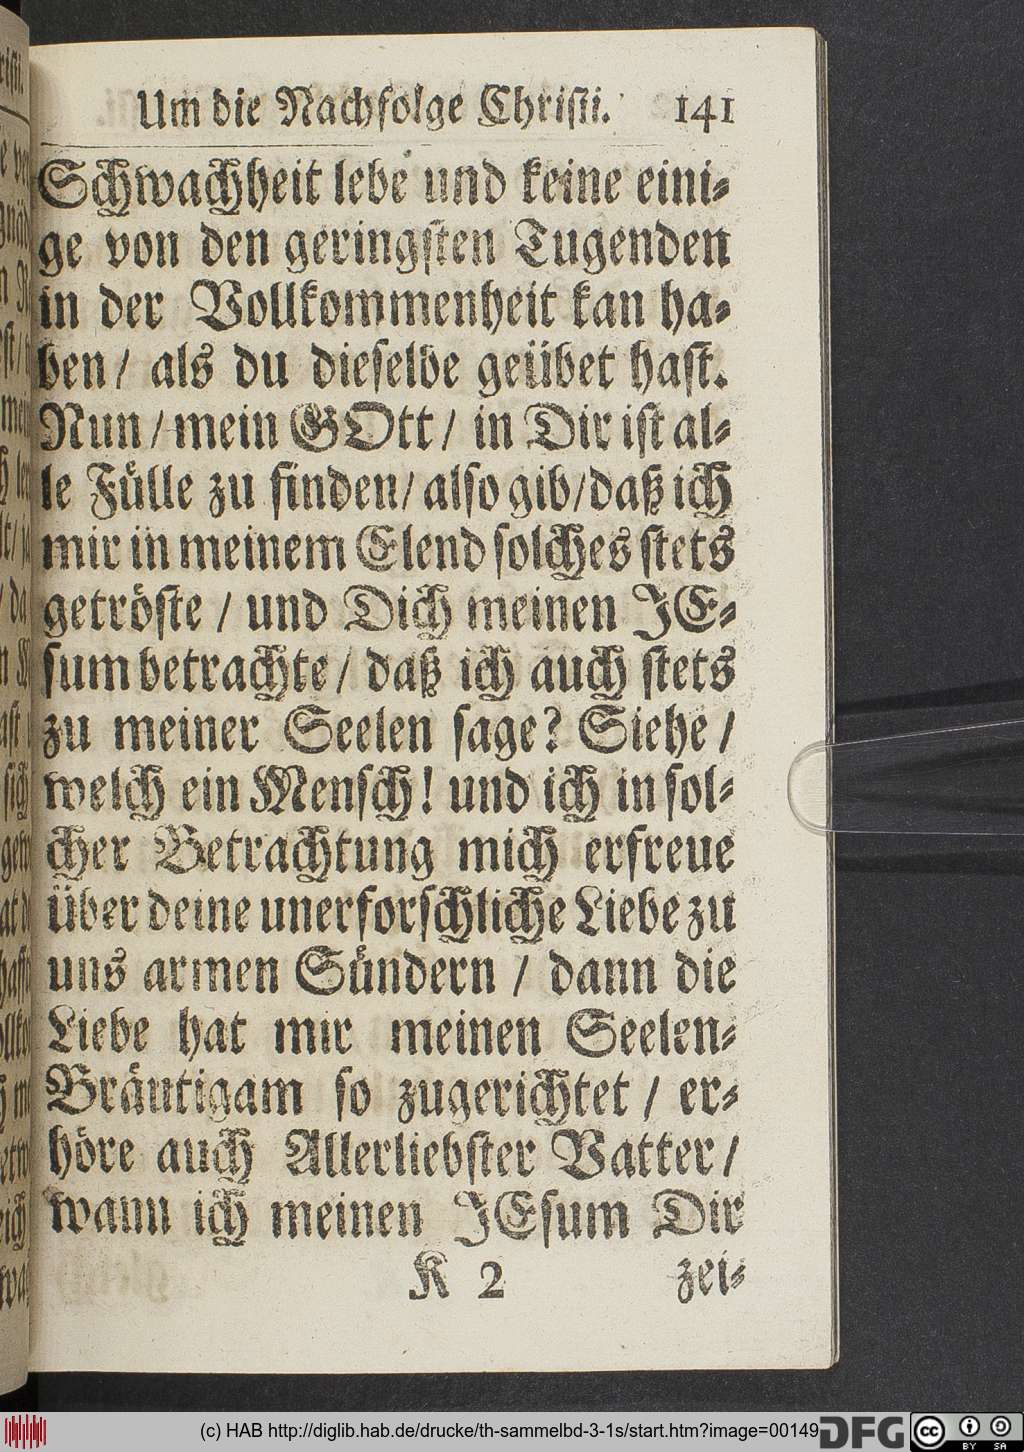 Um die Nachfolge Christi. 141
Schwachheit lebe und keine eini⸗
ge von den geringsten Tugenden
in der Vollkommenheit kan ha⸗
ben / als du dieselbe geübet hast.
Nun / mein GOtt / in Dir ist al⸗
le Fülle zu finden / also gib / daß ich
mir in meinem Elend solches stets
getröste / und Dich meinen JE⸗
sum betrachte / daß ich auch stets
zu meiner Seelen sage? Siehe /
welch ein Mensch! und ich in sol⸗
cher Betrachtung mich erfreue
über deine unerforschliche Liebe zu
uns armen Sündern / dann die
Liebe hat mir meinen Seelen⸗
Bräutigam so zugerichtet / er⸗
höre auch Allerliebster Vatter /
wann ich meinen JEsum Dir
K 2 zei⸗
(c) HAB http://diglib.hab.de/drucke/th-sammelbd-3-1s/start.htm?image=00149
DFG cc BY SA